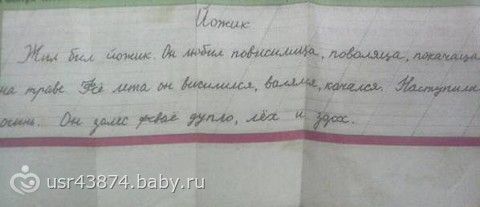 Йожик
Жил бил йожик. Он любил повисилица, поволяца, покачаца
на траве Всё лета он висилился, валялся, качался. Наступила
осинь. Он залес фсваё дупло, лёх и здох.
usr43874.baby.ru